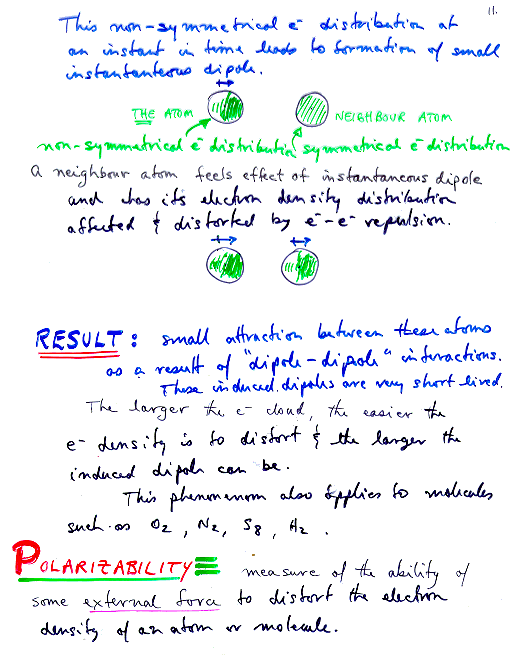 11.
This non-symmetrical e⁻ distribution at
an instant in time leads to formation of small
instantaneous dipole.
THE ATOM NEIGHBOUR ATOM
non-symmetrical e⁻ distribution symmetrical e⁻ distribution
A neighbour atom feels effect of instantaneous dipole
and has its electron density distribution
affected & distorted by e⁻-e⁻ repulsion.
RESULT: small attraction between these atoms
as a result of "dipole-dipole" interactions.
These induced dipoles are very short lived.
The larger the e⁻ cloud, the easier the
e⁻ density is to distort & the larger the
induced dipole can be.
This phenomenom also applies to molecules
such as O₂, N₂, S₈, H₂.
POLARIZABILITY ≡ measure of the ability of
some external force to distort the electron
density of an atom or molecule.